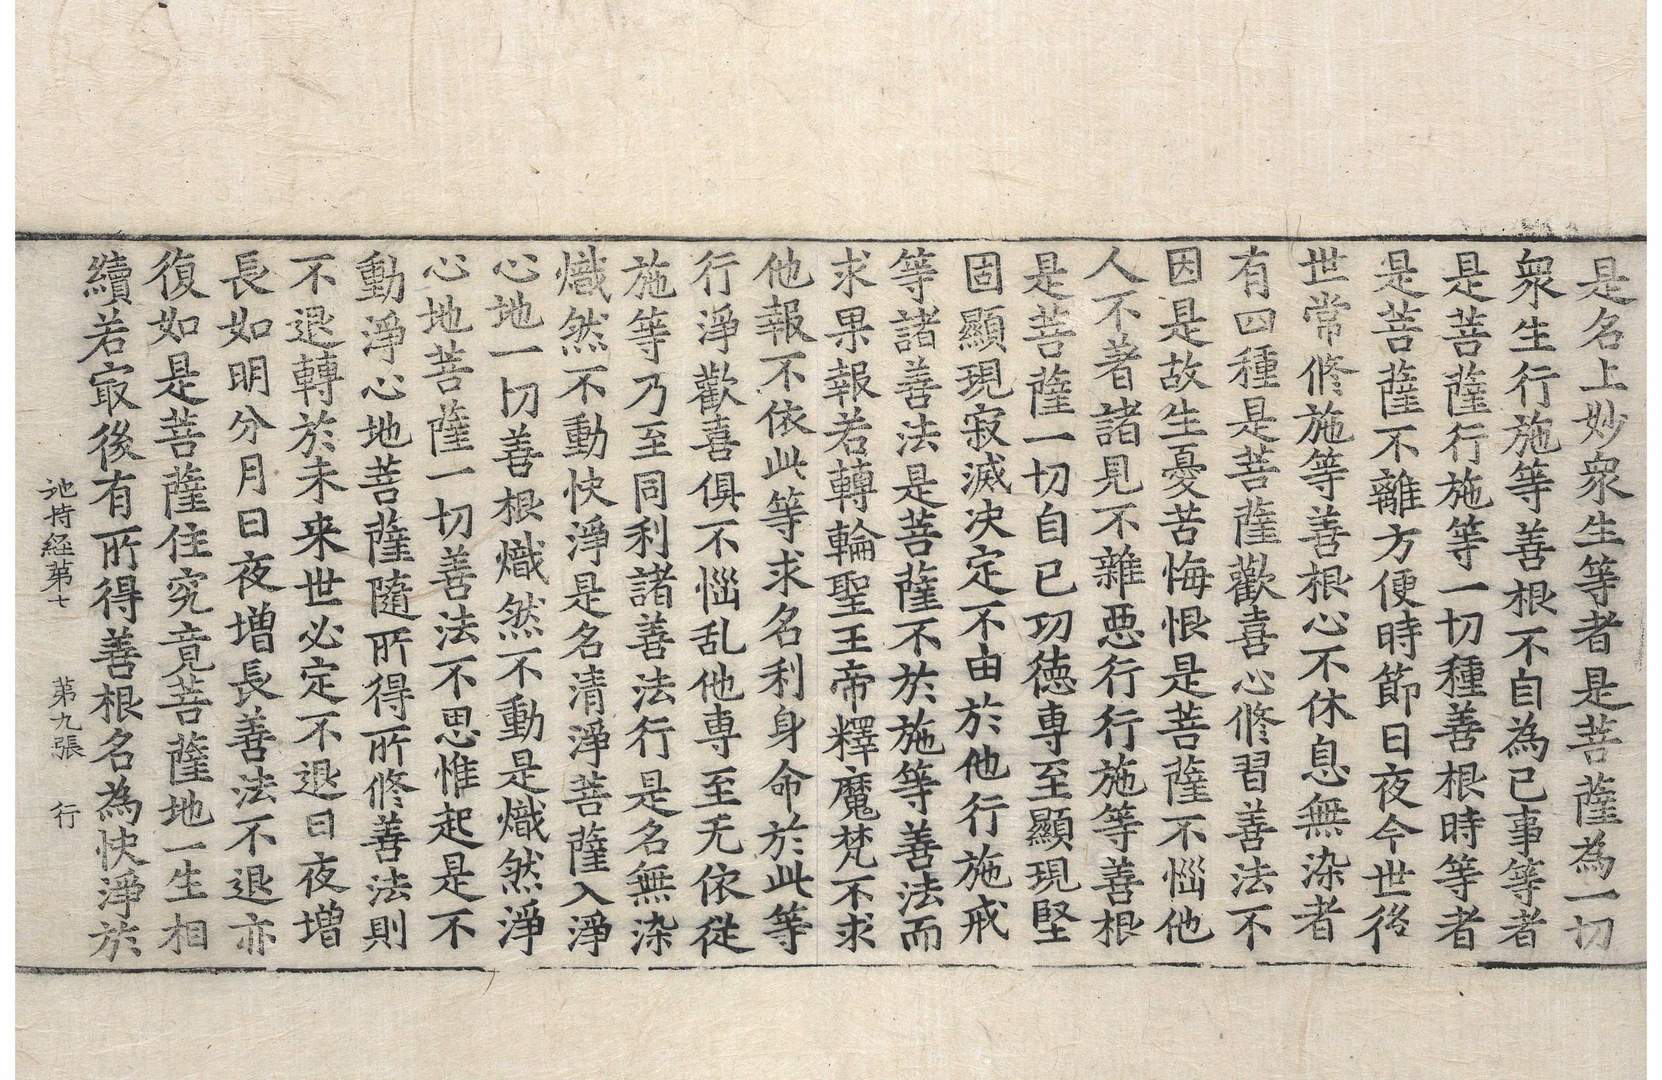 是名上妙衆生等者是菩薩為一切
衆生行施等善根不自為已事等者
是菩薩行施等一切種善根時等者
是菩薩不離方便時節日夜今世後
世常修施等善根心不休息無染者
有四種是菩薩歡喜心修習善法不
因是故生憂苦悔恨是菩薩不惱他
人不著諸見不雜惡行行施等善根
是菩薩一切自已功德専至顯現堅
固顯現寂滅决定不由於他行施戒
等諸善法是菩薩不於施等善法而
求果報若轉輪聖王帝釋魔梵不求
他報不依此等求名利身命於此等
行淨歡喜俱不惱乱他専至无依從
施等乃至同利諸善法行是名無染
熾然不動快淨是名清淨菩薩入淨
心地一切善根熾然不動是熾然淨
心地菩薩一切善法不思惟起是不
動淨心地菩薩隨所得所修善法則
不退轉於未来世必定不退日夜增
長如明分月日夜增長善法不退亦
復如是菩薩住究竟菩薩地一生相
續若㝡後有所得善根名為快淨於
地持経第七 第九張 行